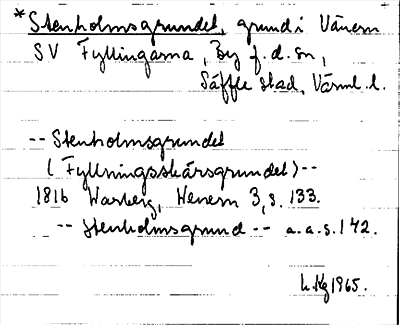 *Stenholmsgrundet, grund i Vänern
SV Fyllingarna, By f.d. sn,
Säffle stad, Värml. l.
-- Stenholmsgrundet
(Fyllningsskärsgrundet) --
1816 Warberg, Wenern 3, s. 133.
-- Stenholmsgrund -- a.a. s. 142.
1965.